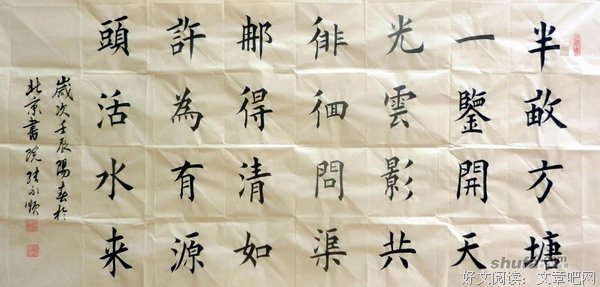 半畝方塘
一鑒開天
光雲影共
徘徊問渠
那得清如
許為有源
頭活水来
歲次壬辰陽春於
北京書院永順
好文阅读：文章吧网